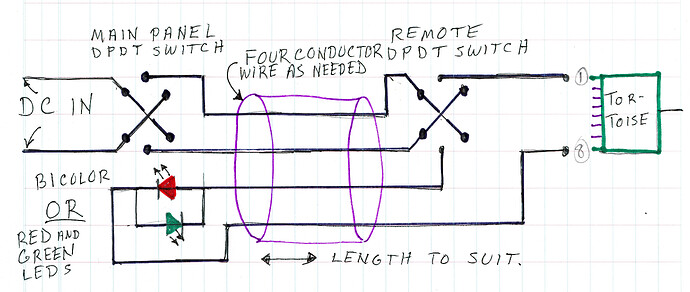 MAIN PANEL
DPDT SWITCH
REMOTE
DPDT SWITCH
FOUR CONDUCTOR
WIRE AS NEEDED
DC IN
1
TOR-
TOISE
8
BICOLOR
OR
RED AND
GREEN
LEDS
LENGTH TO SUIT.